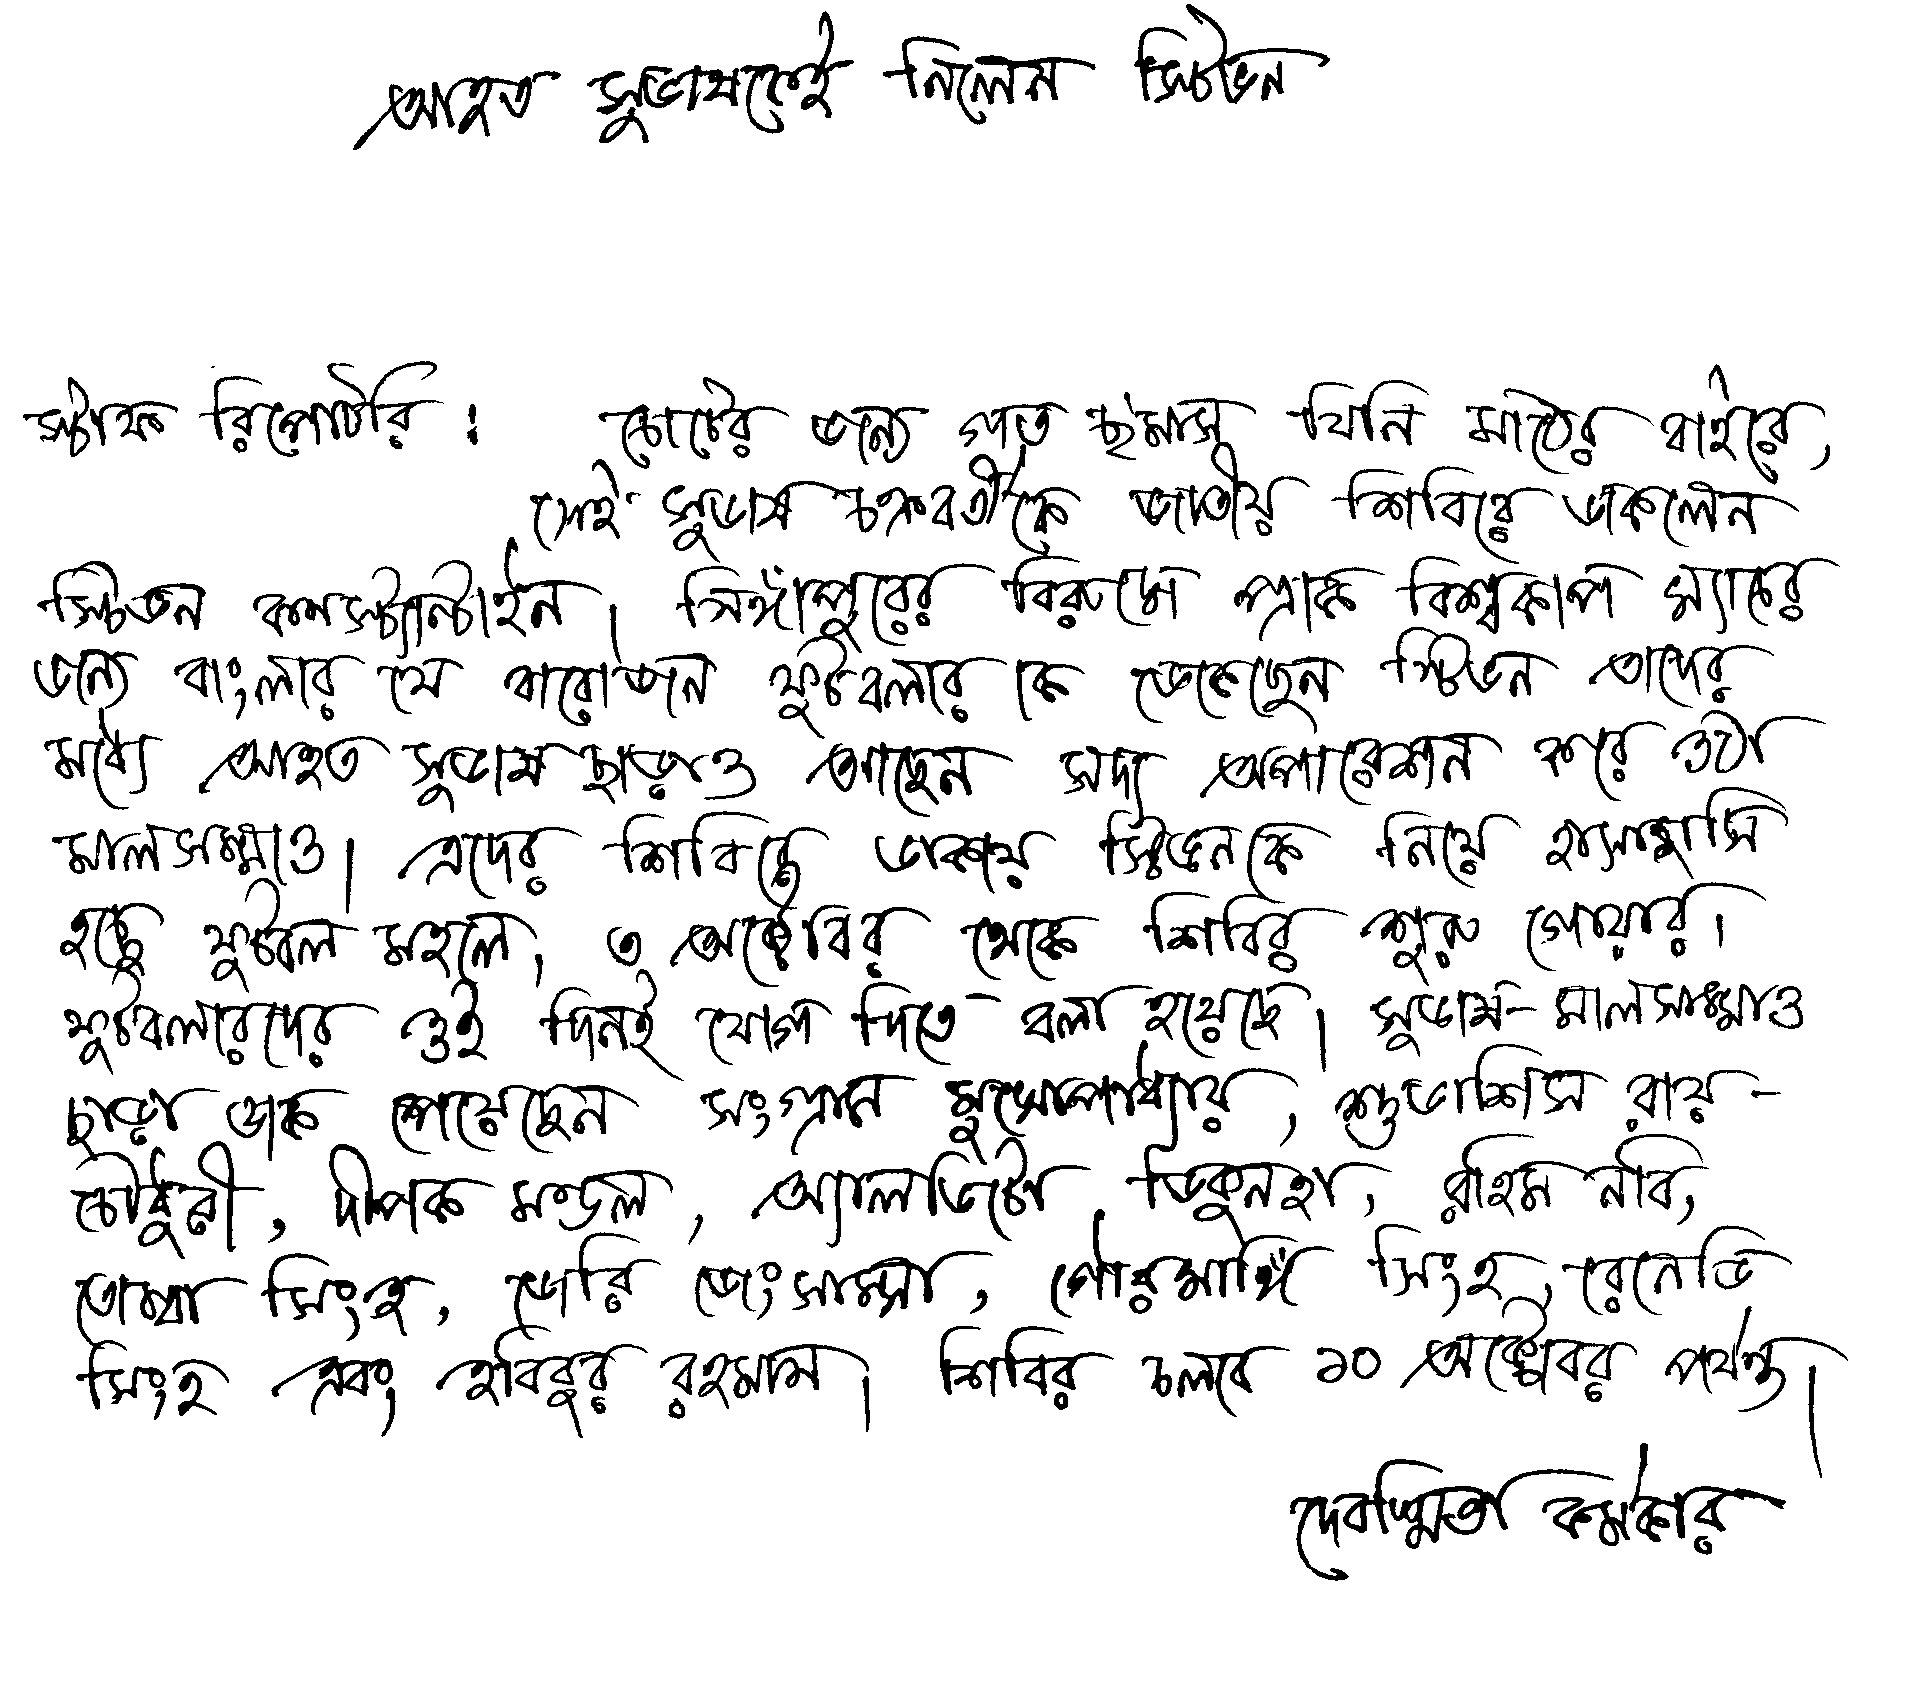 আহত সুভাষকেই নিলেন স্টিভন
স্টাফ রিপোর্টার : চোটের জন্য গত ছ'মাস যিনি মাঠের বাইরে,
সেই সুভাষ চক্রবর্তীকে জাতীয় শিবিরে ডাকলেন
স্টিভন কনস্ট্যান্টাইন। সিঙ্গাপুরের বিরুদ্ধে প্রাক বিশ্বকাপ ম্যাচের
জন্য বাংলার যে বারোজন ফুটবলার কে ডেকেছেন স্টিভন তাদের
মধ্যে আহত সুভাষ ছাড়াও আছেন সদ্য অপারেশন করে ওঠা
মালসাম্মাও। এদের শিবিরে ডাকায় স্টিভনকে নিয়ে হাসাহাসি
হচ্ছে ফুটবল মহলে, ৩ অক্টোবর থেকে শিবির শুরু গোয়ায়।
ফুটবলারদের ওই দিনই যোগ দিতে বলা হয়েছে। সুভাষ-মালসাম্মাও
ছাড়া ডাক পেয়েছেন সংগ্রাম মুখোপাধ্যায়, শুভাশিস রায়-
চৌধুরী, দীপক মণ্ডল, অ্যালভিটো ডিকুনহা, রহিম নবি,
তোম্বা সিংহ, জেরি জেংসাঙ্গা, গৌরমাঙ্গি সিংহ, রেনেডি
সিংহ এবং হবিবুর রহমান। শিবির চলবে ১০ অক্টোবর পর্যন্ত।
দেবস্মিতা কর্মকার